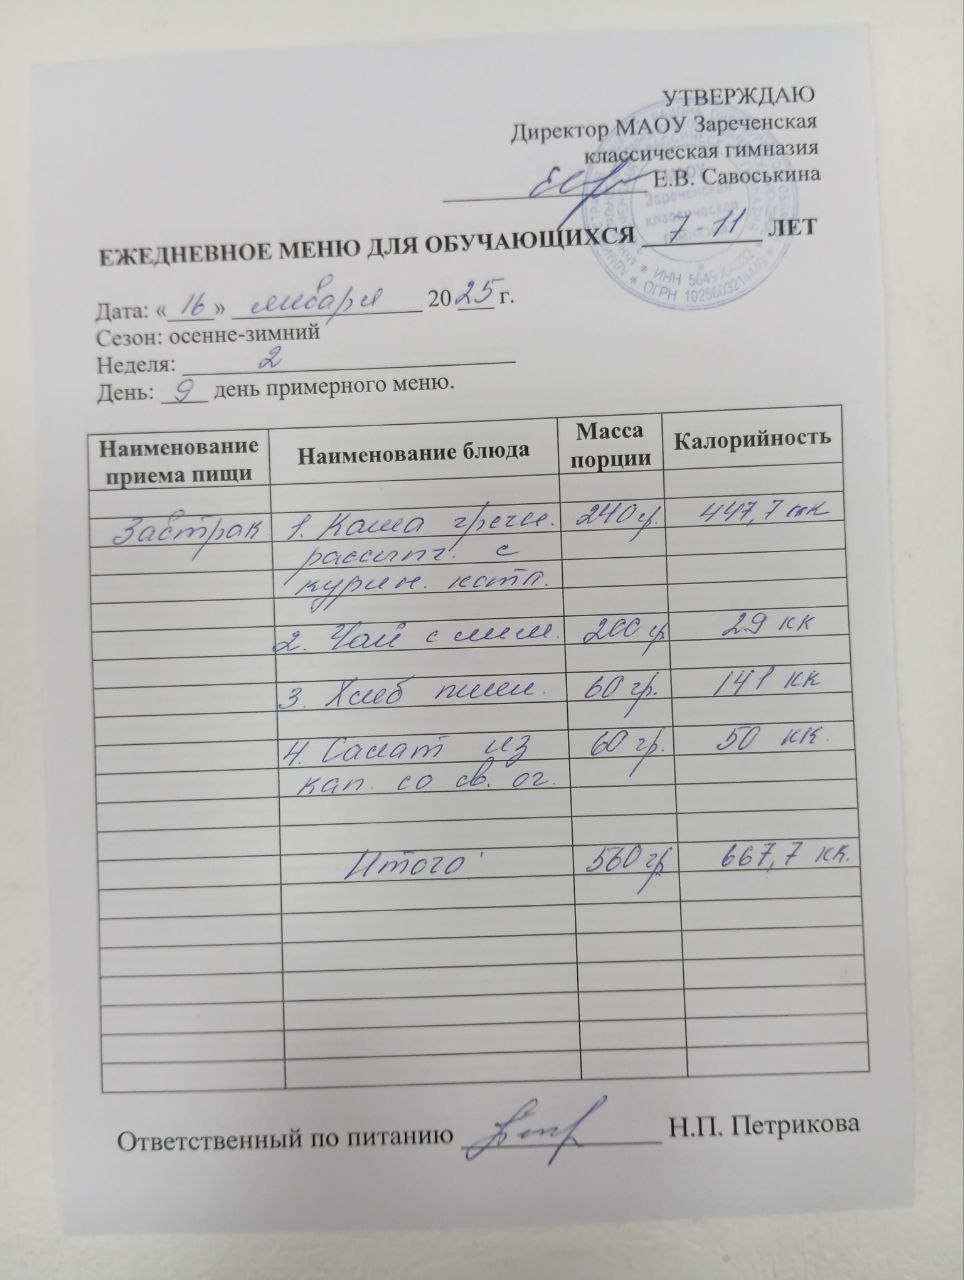 УТВЕРЖДАЮ
Директор МАОУ Зареченская
классическая гимназия
Е.В. Савоськина
ЕЖЕДНЕВНОЕ МЕНЮ ДЛЯ ОБУЧАЮЩИХСЯ 7 11 ЛЕТ
Дата: «16» января 2025 г.
Сезон: осенне-зимний
Неделя: 2
День: 9 день примерного меню.
Наименование приема пищи Наименование блюда Масса порции Калорийность
Завтрак 1. Каша гречн. 240 гр. 447,7 кк
рассыпч. с
курин. котл.
2. Чай с лим. 200 гр 29 кк
3. Хлеб пшен. 60 гр. 141 кк
4. Салат из 60 гр. 50 кк.
кап. со св. ог.
Итого 560 гр 667,7 кк.
Ответственный по питанию Н.П. Петрикова